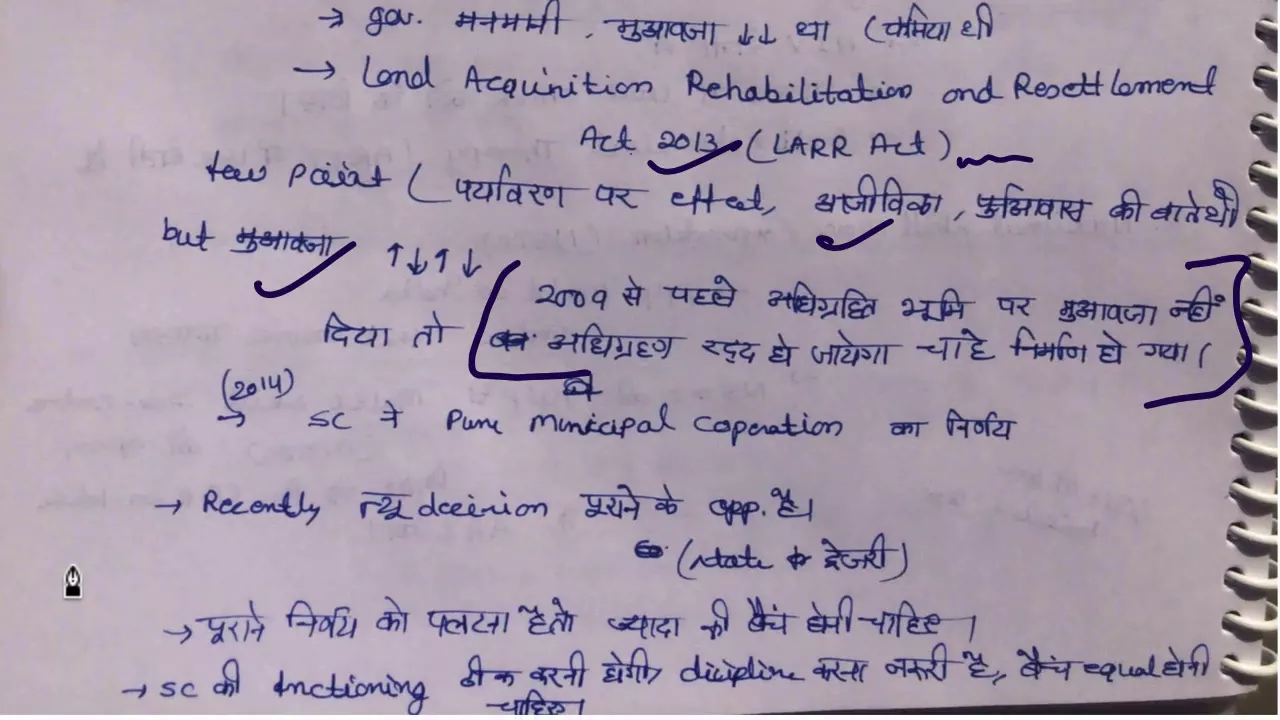 → gov. मनमानी, मुआवजा ↓↓ था (कमिया थी
→ Land Acquinition Rehabilitation and Resettlement
Act 2013 (LARR Act)
few point ( पर्यावरण पर effect, आजीविका, पुर्नआवास की बाते थी
but मुआवजा ↑↓↑↓
2009 से पहले अधिग्रहित भूमि पर मुआवजा नहीं
दिया तो अधिग्रहण रद्द हो जायेगा चाहे निर्माण हो गया (
हो
(2014)
→ SC ने Pune Municipal Coperation का निर्णय
→ Recently न्यू dceirion पूराने के opp. है।
(state के ट्रेजरी)
→ पूराने निर्णय को पलटना है तो ज्यादा की बैंच होनी चाहिए।
→ SC की functioning ठीक करनी होगी, dicipline करना जरूरी है, बैंच equal होनी
चाहिए।